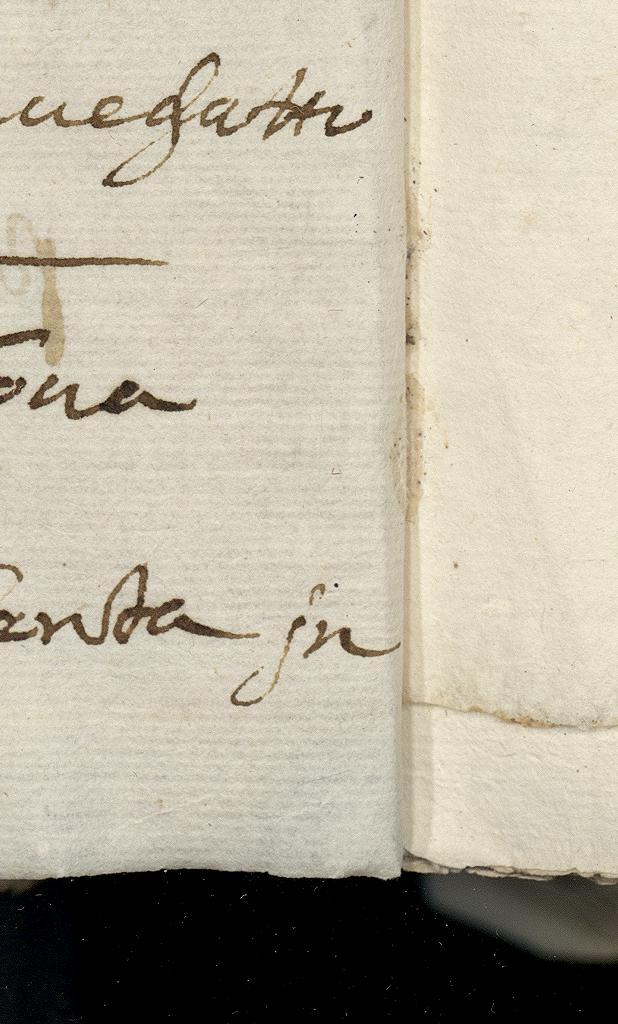 uegatti
ona
enta jn